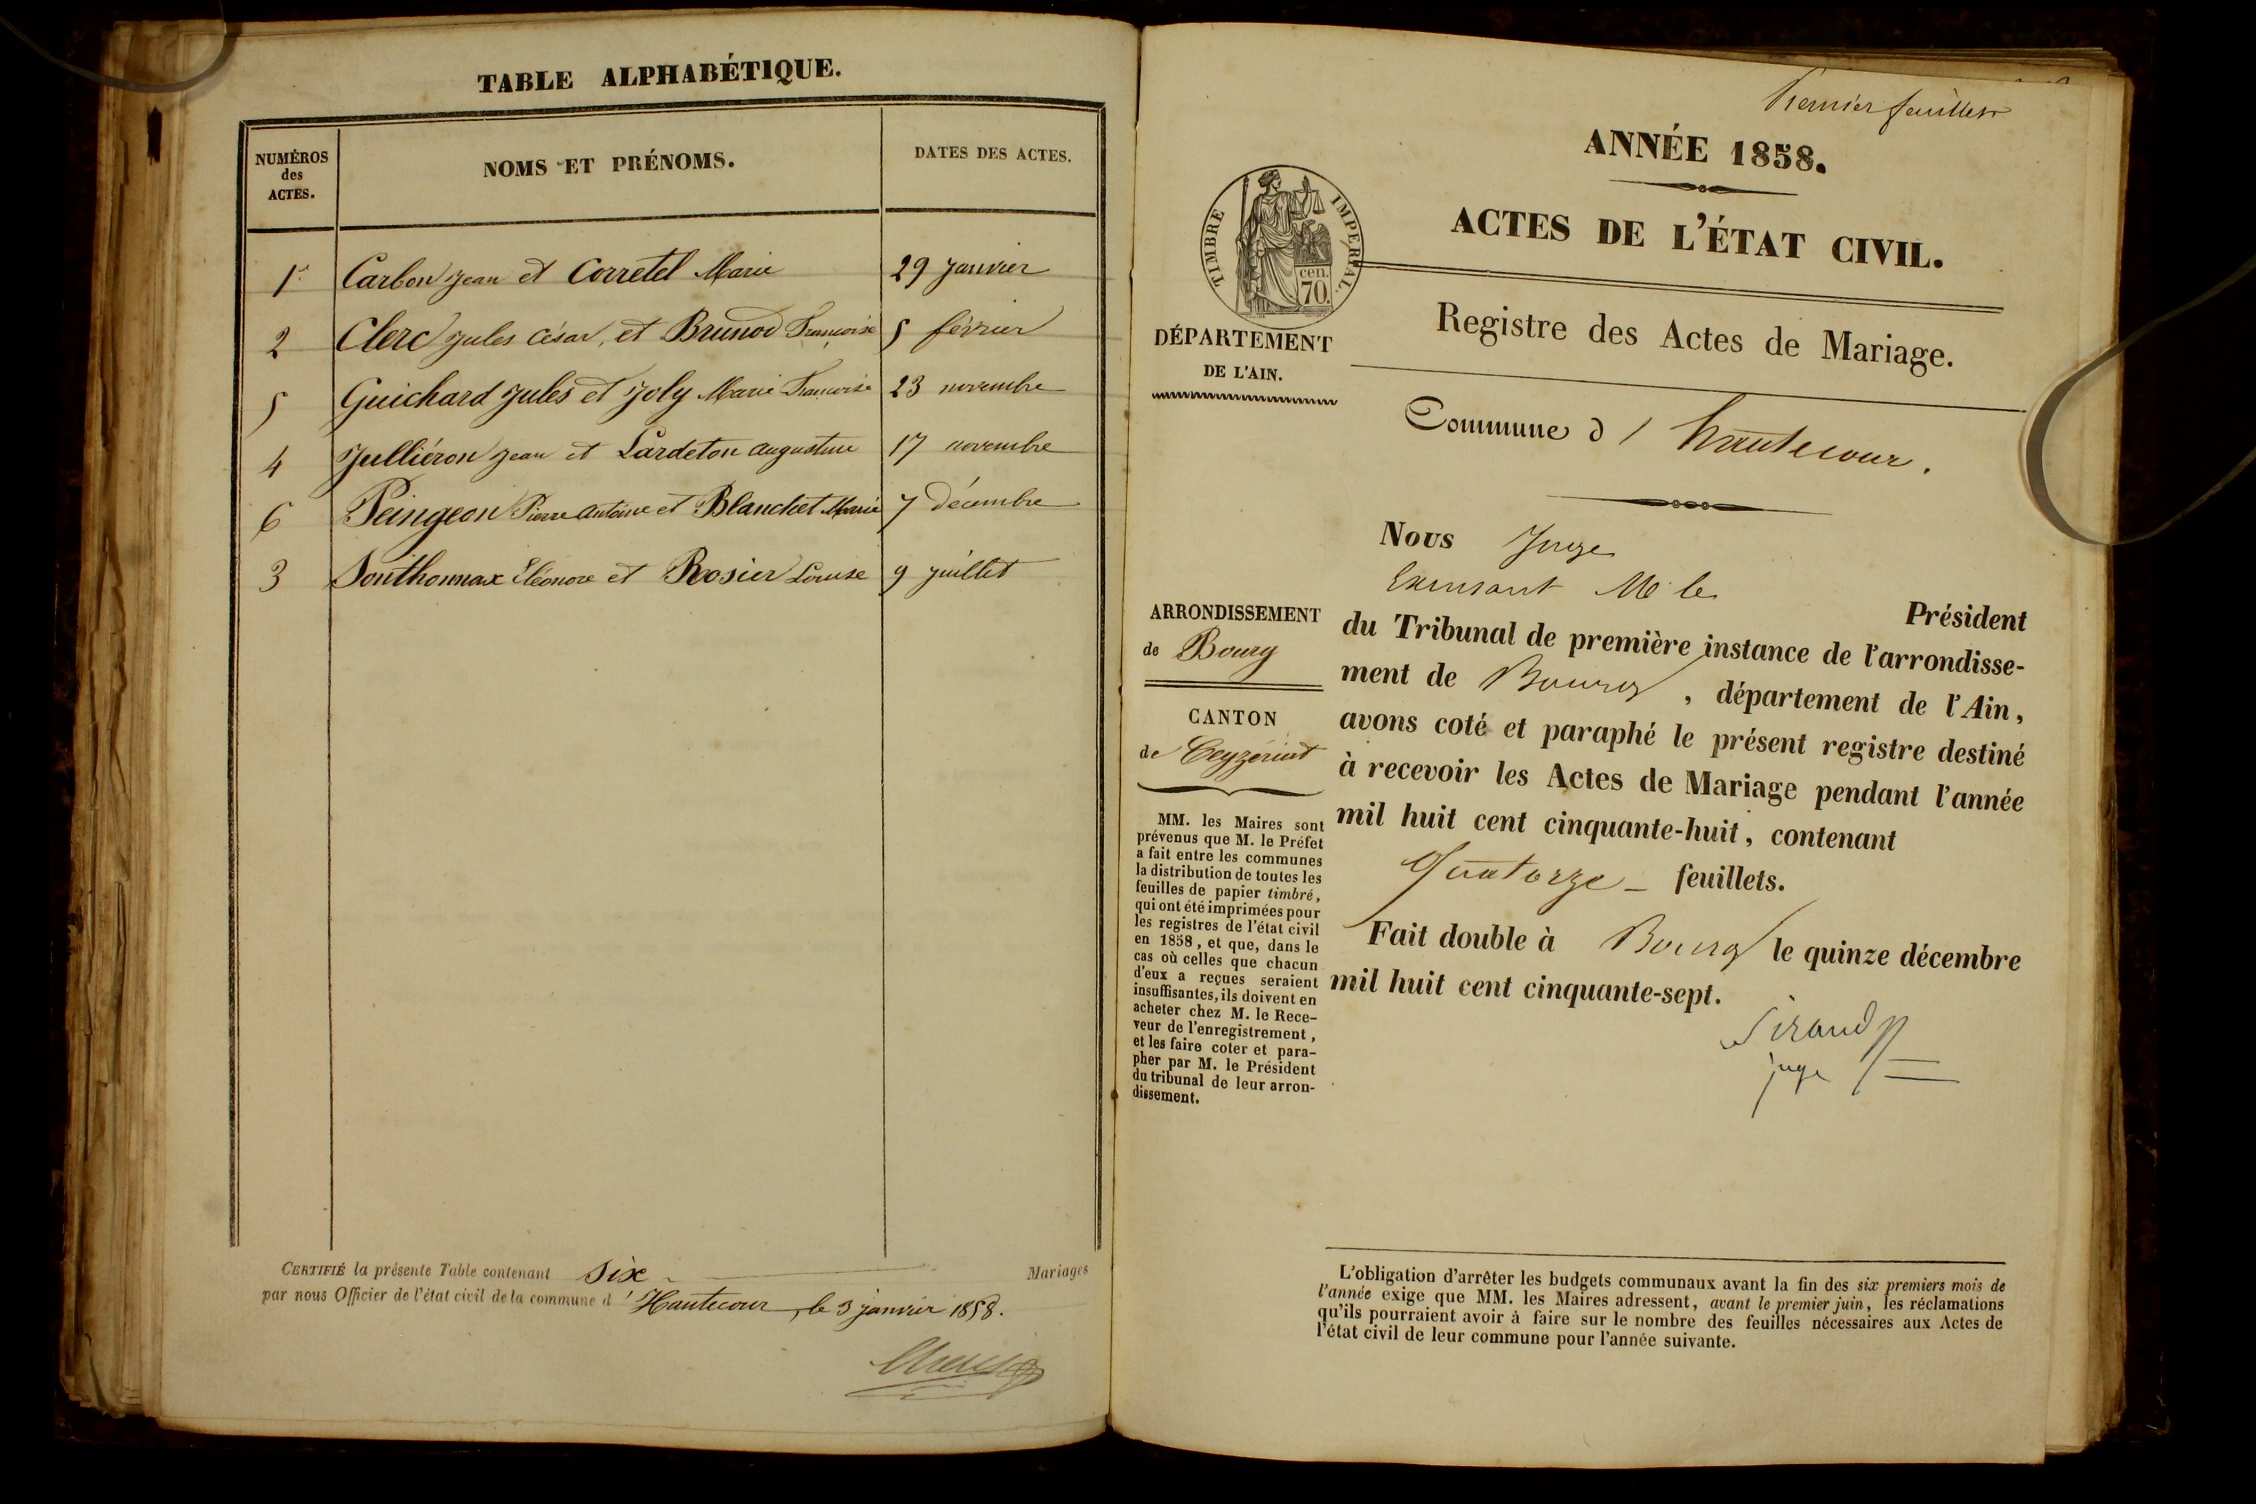 TABLE ALPHABÉTIQUE.
NUMÉROS
des
ACTES.
NOMS ET PRÉNOMS.
DATES DES ACTES.
1er Carbon Jean et Corretel Marie 29 janvier
2 Clerc Jules César, et Brunod Françoise 5 février
5 Guichard Jules et Joly Marie Françoise 23 novembre
4 Julliéron Jean et Lardeton augustine 17 novembre
6 Peingeon Pierre antoine et Blanchet Marie 7 décembre
3 Sonthonnax Eléonore et Rosier Louise 9 juillet
CERTIFIÉ la présente Table contenant six Mariages
par nous Officier de l'état civil de la commune d'Hautecour, le 3 janvier 1858.
Premier feuillet
ANNÉE 1858.
ACTES DE L'ÉTAT CIVIL.
TIMBRE IMPÉRIAL.
cen.
70.
Registre des Actes de Mariage.
DÉPARTEMENT
DE L'AIN.
Commune d' hautecour.
Nous Juge
Excusant M. le
Président
du Tribunal de première instance de l'arrondisse-
ment de Bourg, département de l'Ain,
avons coté et paraphé le présent registre destiné
à recevoir les Actes de Mariage pendant l'année
mil huit cent cinquante-huit, contenant
Quatorze - feuillets.
Fait double à Bourg le quinze décembre
mil huit cent cinquante-sept.
Sirand
juge
ARRONDISSEMENT
de Bourg
CANTON
de Ceyzeriat
MM. les Maires sont
prévenus que M. le Préfet
a fait entre les communes
la distribution de toutes les
feuilles de papier timbré,
qui ont été imprimées pour
les registres de l'état civil
en 1858, et que, dans le
cas où celles que chacun
d'eux a reçues seraient
insuffisantes, ils doivent en
acheter chez M. le Rece-
veur de l'enregistrement,
et les faire coter et para-
pher par M. le Président
du tribunal de leur arron-
dissement.
L'obligation d'arrêter les budgets communaux avant la fin des six premiers mois de
l'année exige que MM. les Maires adressent, avant le premier juin, les réclamations
qu'ils pourraient avoir à faire sur le nombre des feuilles nécessaires aux Actes de
l'état civil de leur commune pour l'année suivante.